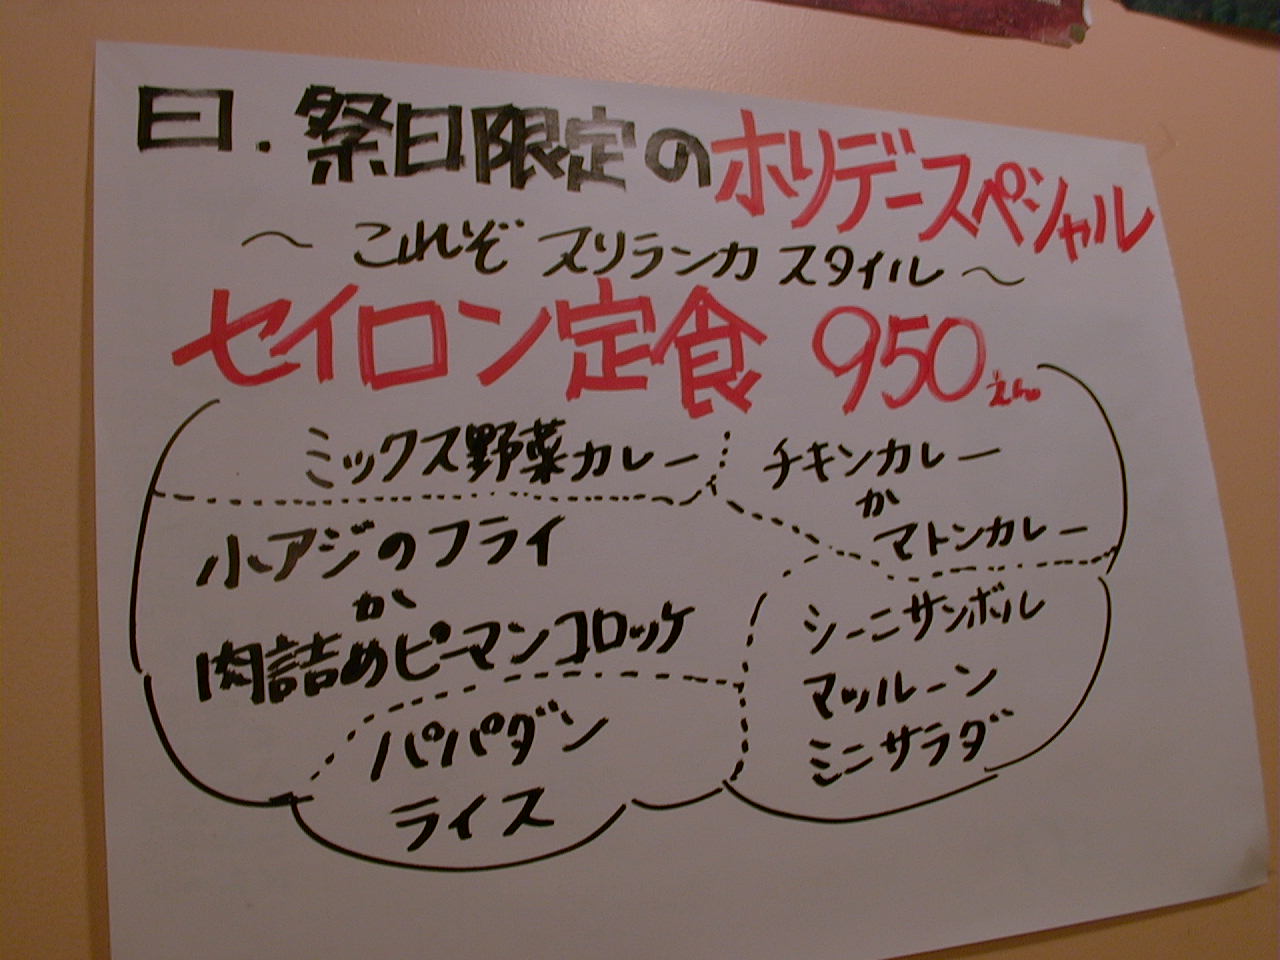 日・祭日限定のホリデースペシャル
～これぞ スリランカ スタイル～
セイロン定食 950えん
ミックス野菜カレー
チキンカレー
か
マトンカレー
小アジのフライ
か
肉詰めピーマンコロッケ
シーニサンボル
マッルーン
ミニサラダ
パパダン
ライス